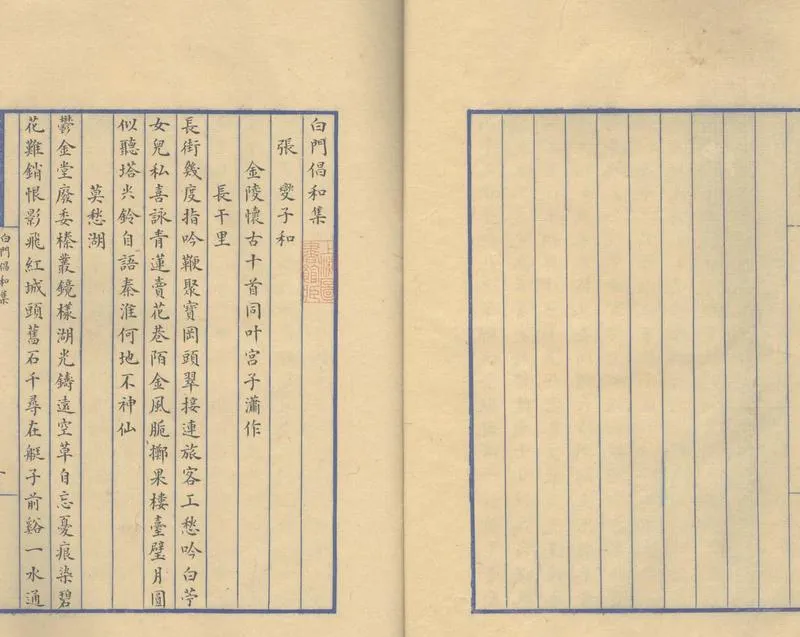 白門倡和集
張燮子和
金陵懷古十首同叶宫子瀟作
長干里
長街幾度指吟鞭聚寶岡頭翠接連旅客工愁吟白苧
女兒私喜詠青蓮賣花巷陌金風脆擲果樓臺璧月圓
似聽塔尖鈴自語秦淮何地不神仙
莫愁湖
鬱金堂廢委榛叢鏡樣湖光鑄遠空草自忘憂痕染碧
花難銷恨影飛紅城頭舊石千尋在艇子前谿一水通
白門倡和集